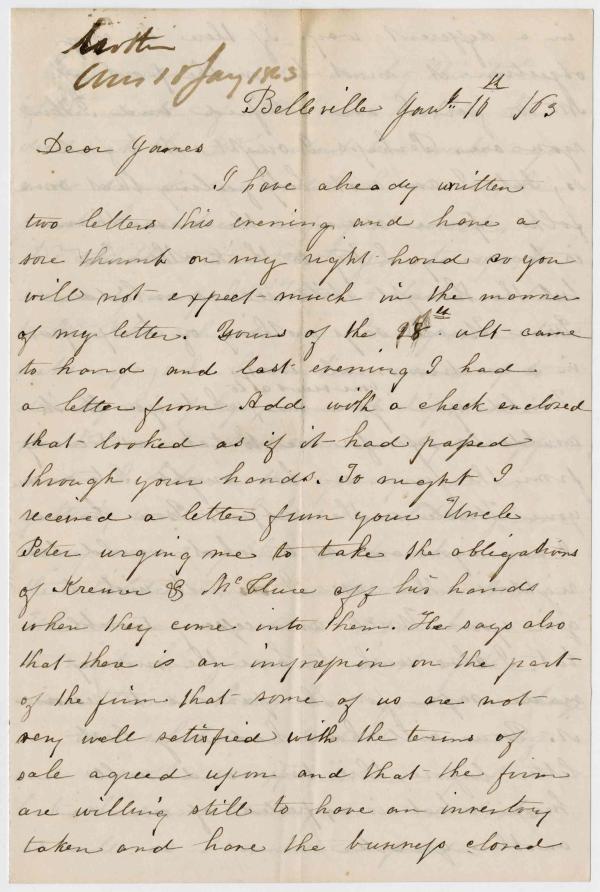 Mother
Ans 18 Jany 1863
Belleville Jany 10th /63
Dear James
I have already written
two letters this evening and have a
sore thumb on my right hand so you
will not expect much in the manner
of my letter. Yours of the 28th ult came
to hand and last evening I had
a letter from Add with a check enclosed
that looked as if it had passed
through your hands. To night I
received a letter from your Uncle
Peter urging me to take the obligations
of & McClure off his hands
when they come into them. He says also
that there is an impression on the part
of the firm that some of us are not
very well satisfied with the terms of
sale agreed upon and that the firm
are willing still to have an inventory
taken and have the business closed